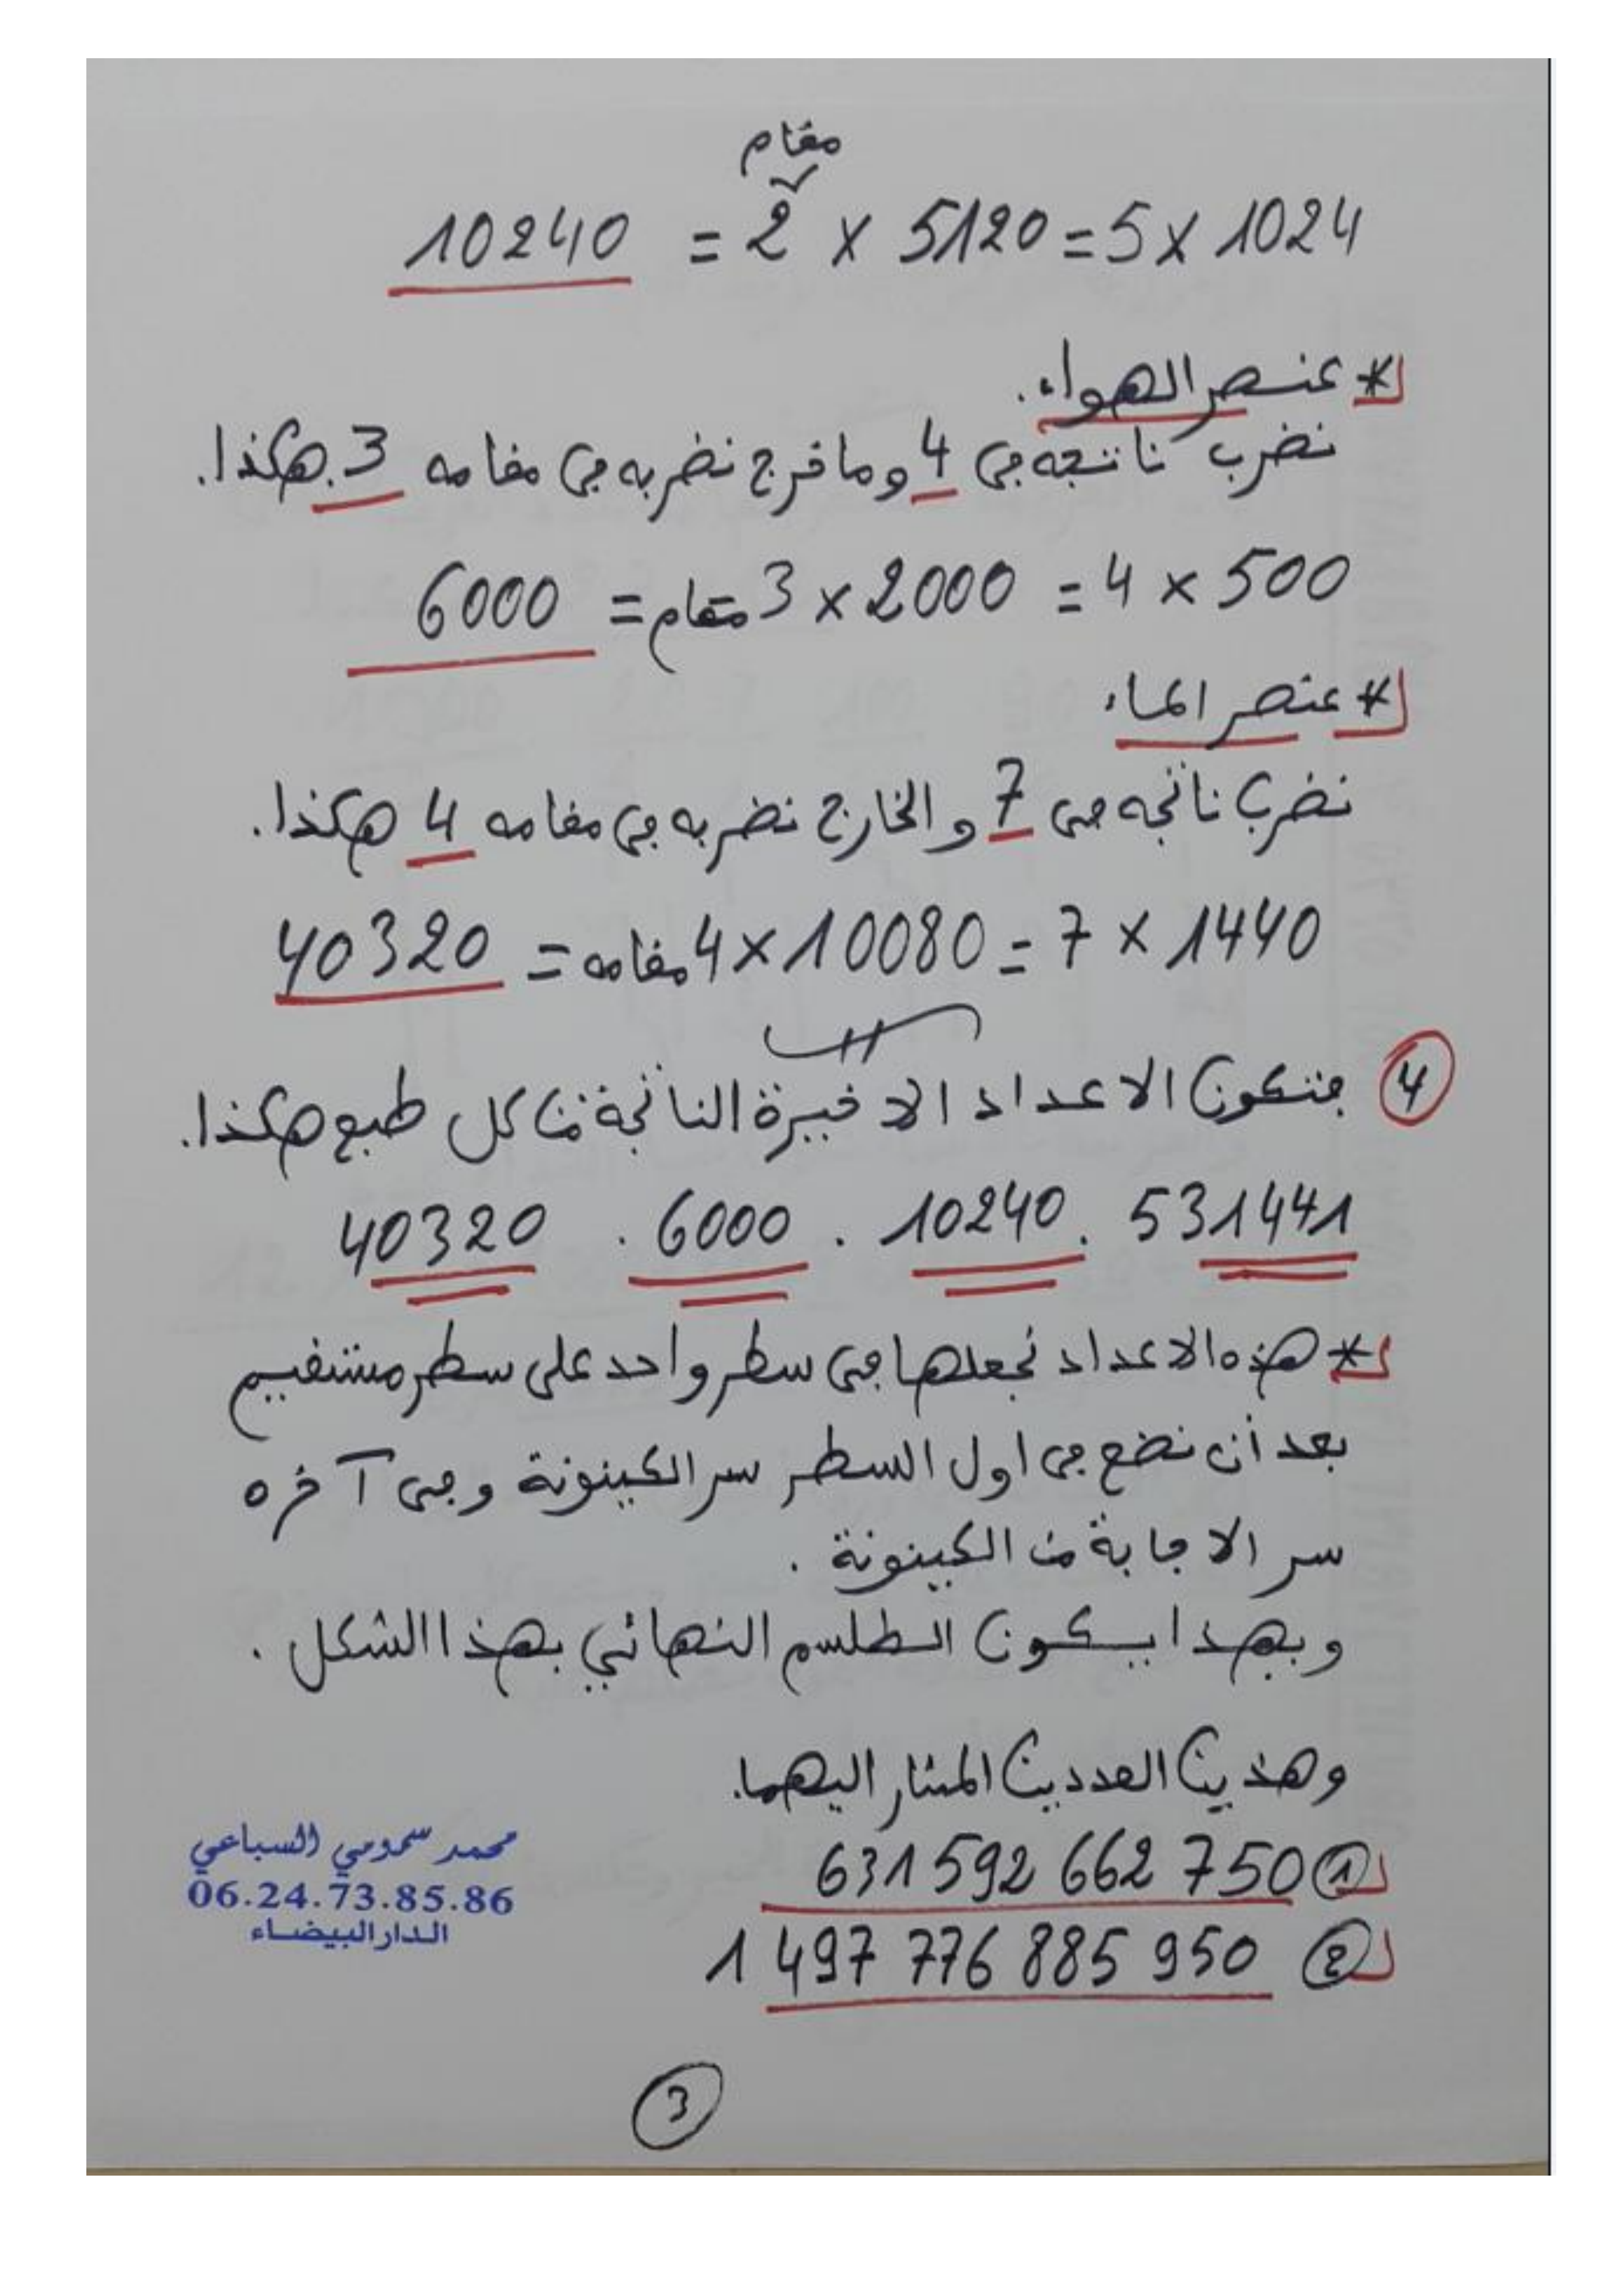 مقام
10240 = 2 × 5120 = 5 × 1024
* عنصر الهواء.
نضرب ناتجه في 4 وما خرج نضربه في مقامه 3. هكذا.
6000 = مقام 3 × 2000 = 4 × 500
* عنصر الماء
نضرب ناتجه في 7 والخارج نضربه في مقامه 4 هكذا.
40320 = مقامه 4 × 10080 = 7 × 1440
4 فتكون الاعداد الاخيرة الناتجة من كل طبع هكذا.
531441 . 10240 . 6000 . 40320
* هذه الاعداد نجعلها في سطر واحد على سطر مستقيم
بعد أن نضع في اول السطر سر الكينونة وفي آخره
سر الاجابة من الكينونة .
وبهدا يكون الطلسم النهائي بهذا الشكل .
وهذين العددين المشار اليهما.
① 631 592 662 750
② 1 497 776 885 950
محمد سمومي السباعي
06.24.73.85.86
الدار البيضاء
3